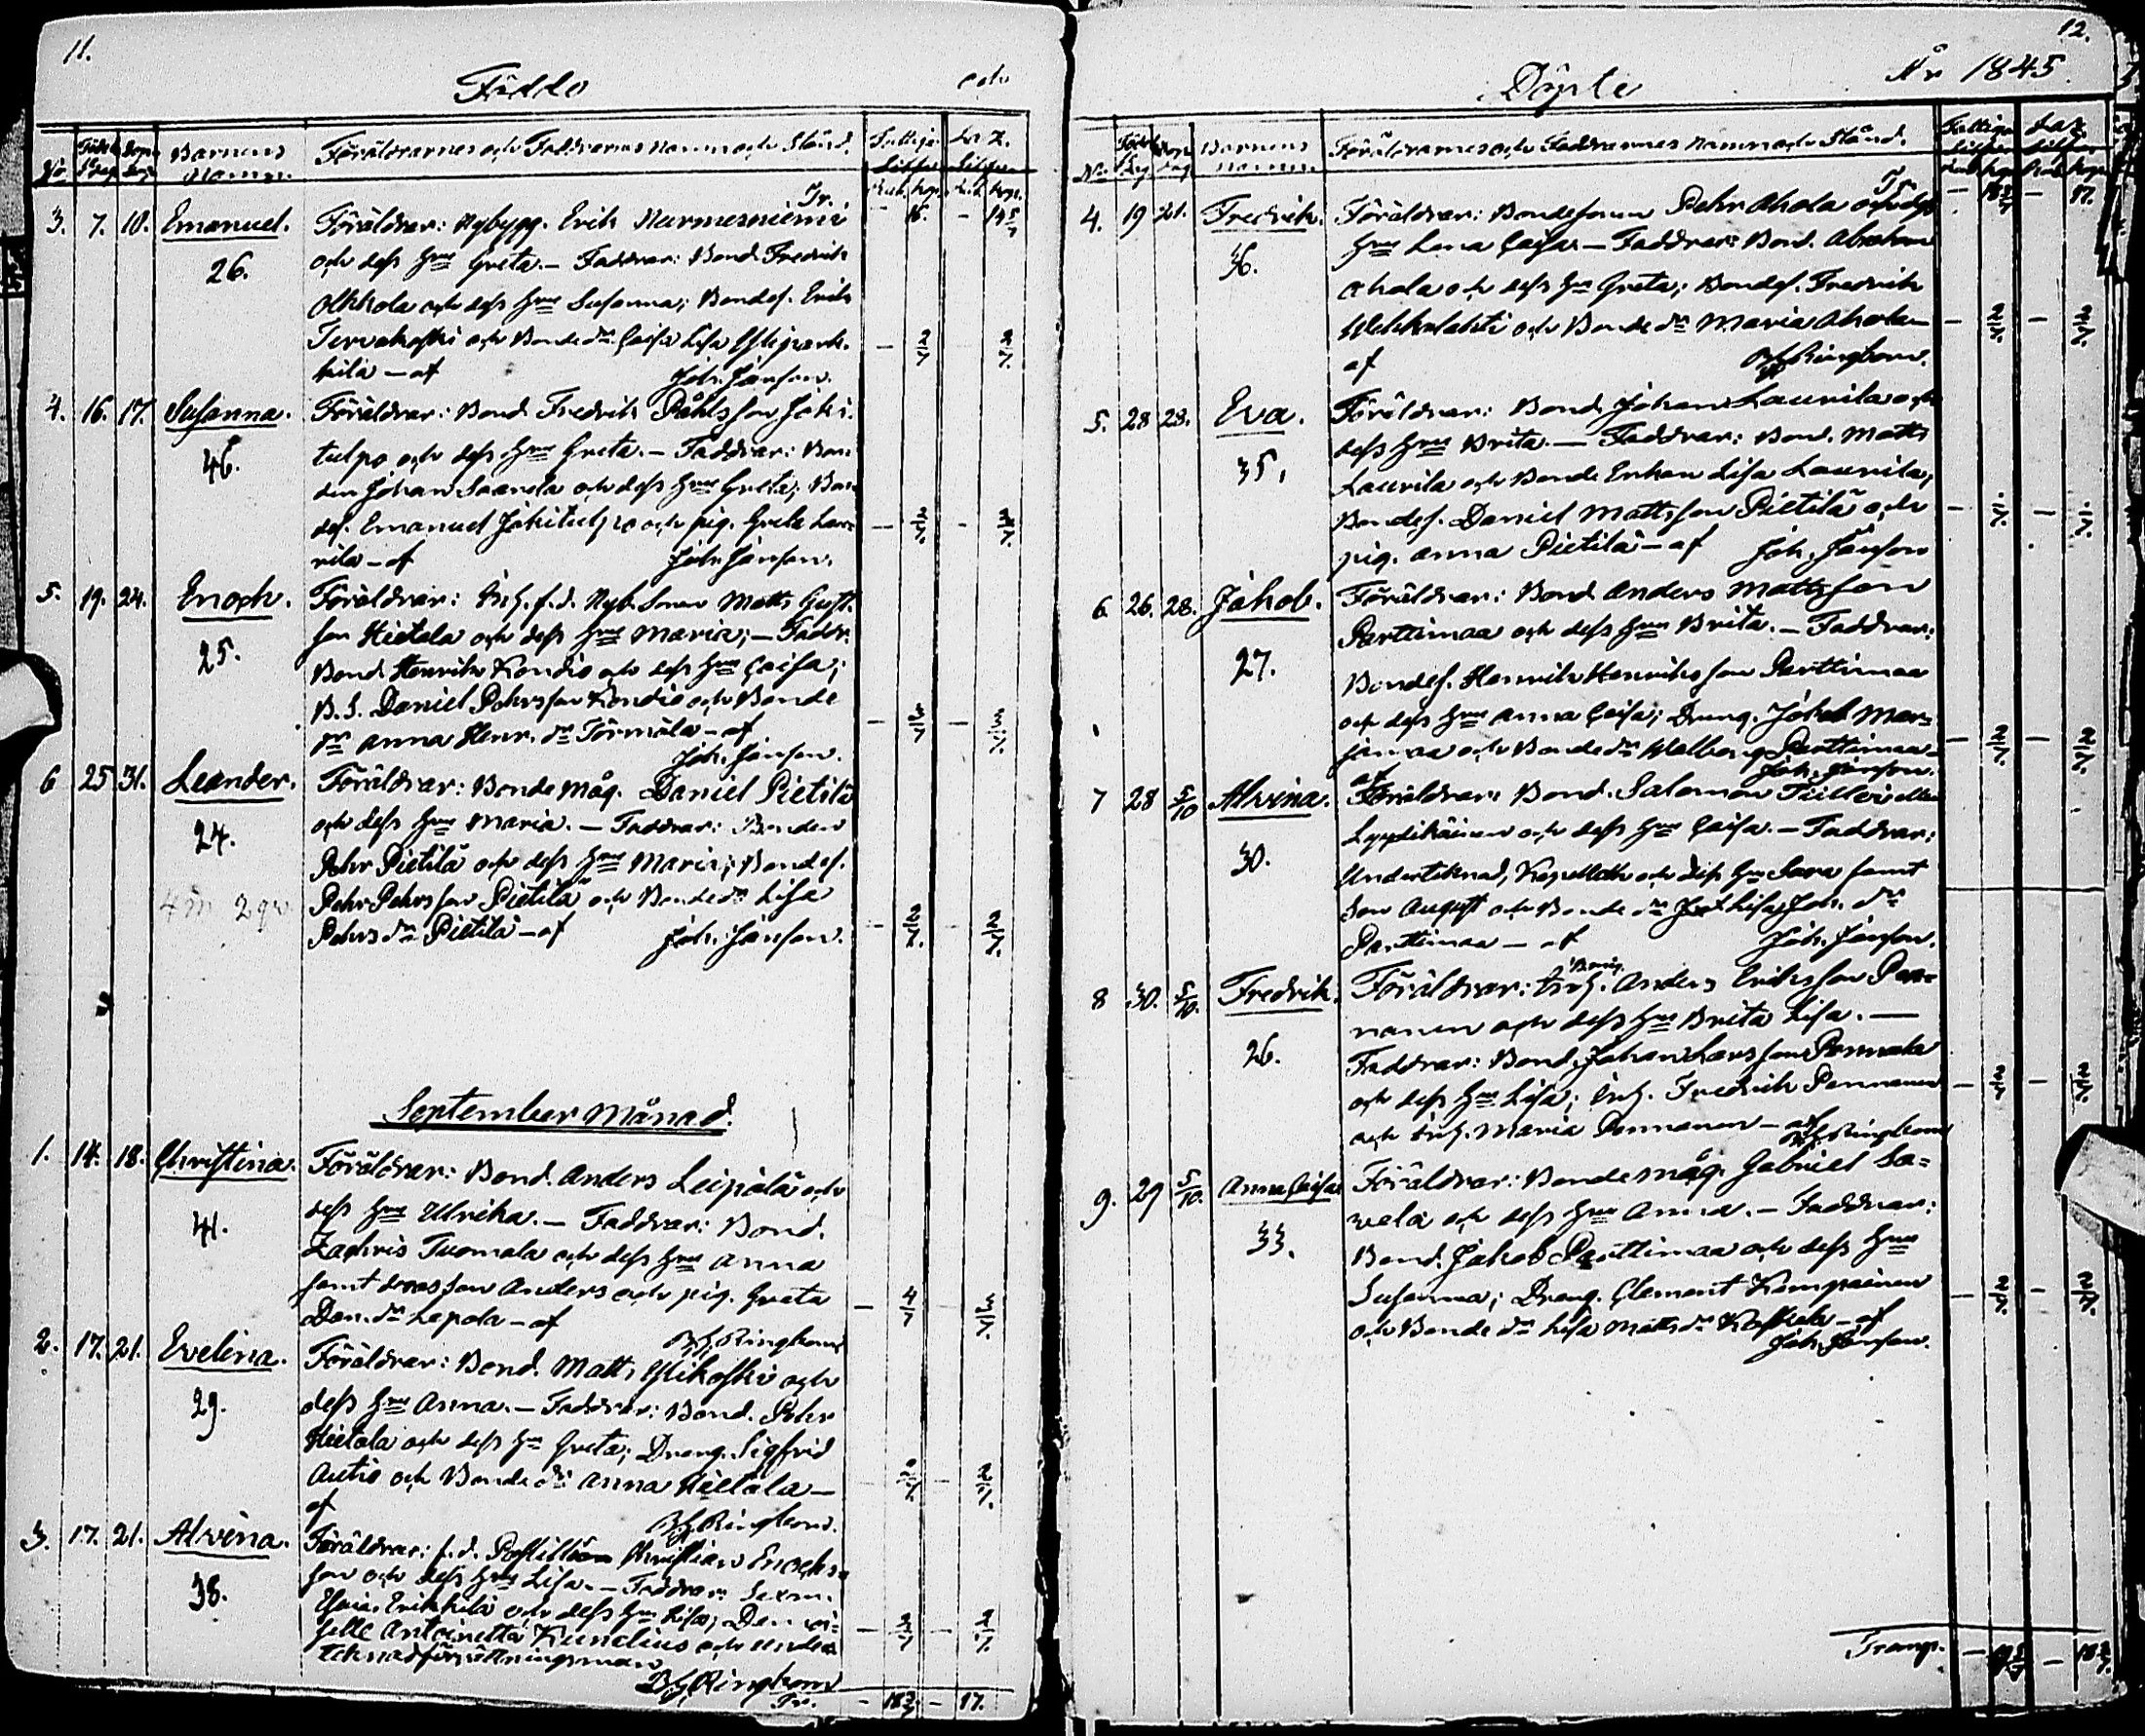 11.
Födde och
No Födelse Dag Dop Dag Barnens Namn. Föräldrarnes och Faddrarnes namn och Stånd. Fattige Silfver Rub. Kop. Silfver Rub. Kop.
Tr. - 16. -
3. 7. 10. Emanuel. Föräldrar: Nybygg. Erik Nurmesniemi
26. och dess Hru Greta. – Faddrar: Bond. Fredrik
Alkkola och dess Hru Susanna; Bondes. Erik
Tervakoski och Bonde dr Caisa Lisa
kila – af Joh. Janson.
4. 16. 17. Susanna. Föräldrar: Bond Fredrik Påhlsson Joki
46. tulpo och dess Hru Greta. – Faddrar: Bon
den Johan Saarela och dess Hru Greta; Bon
des. Emanuel Jokitulpo och pig. Greta Lau
rila – af Joh. Janson.
5. 19. 24. Enoch. Föräldrar: Inh. f.d. Nyb. Sonen Matts Gust.
25. son Hietala och dess Hru Maria; – Faddr.
Bond. Henrik Kondio och dess Hru Caisa;
B.S. Daniel Pehrsson Kondio och Bonde
dr Anna Henr. dr Törmälä – af
Joh. Janson.
6 25 31. Leander. Föräldrar: Bonde måg. Daniel Pietilä
24. och dess Hru Maria. – Faddrar: Bonden
Pehr Pietilä och dess Hru Maria; Bondes.
4 m 2 qv Pehr Pehrsson Pietilä och Bonde dr Lisa
Pehrs dr Pietilä – af Joh. Janson.
September Månad.
1. 14. 18. Christina. Föräldrar: Bond. Anders Leipälä och
41. dess Hru Ulrika. – Faddrar: Bond.
Zachris Tuomala och dess Hru Anna
samt deras son Anders och pig. Greta
Dan. dr Lapola – af
B.H. Ringbom
2. 17. 21. Evelina. Föräldrar: Bond. Matts Ylikoski och
29. dess Hru Anna. – Faddrar: Bond. Pehr
Hietala och dess Hru Greta; Dreng. Sigfrid
Autio och Bonde dr Anna Hietala –
af B.H. Ringbom.
3. 17. 21. Alvina. Föräldrar: f.d. Postillion Christian Enochs
38. son och dess Hru Lisa. – Faddrar: Sexm.
Esaias Erikkilä och dess Hru Lisa; Demoi-
selle Antoinetta Kunelius och under
tecknad förrättningsman
B.H. Ringbom
Tr. - 18 2/7 - 17.
12.
Döpte År 1845.
No. Födelse Dag Dop Dag Barnens namn. Föräldrarnes och Faddrarnes Namn och Stånd. Fattige Silfver Rub. Kop. Silfver Rub. Kop.
Tr. - 18 2/7 - 17.
4. 19 21. Fredrik. Föräldrar: Bondesonen Pehr Ahola och dess
36. Hru Lena Caisa – Faddrar: Bond. Abraham
Ahola och dess Hru Greta; Bondes. Fredrik
och Bonde dr Maria Ahola –
af B.H. Ringbom.
5. 28 28. Eva. Föräldrar: Bond Johan Laurila och
35. dess Hru Brita. – Faddrar: Bond. Matts
Laurila och Bonde Enkan Lisa Laurila;
Bondes. Daniel Mattsson Pietilä och
pig. Anna Pietilä – af Joh. Janson
6 26. 28. Jakob. Föräldrar: Bond Anders Mattsson
27. Parttimaa och dess Hru Brita. – Faddrar:
Bondes. Henrik Henriksson Parttimaa
och dess Hru Anna Caisa; Dreng. Jakob Mar-
janaa och Bonde dr Walborg Parttimaa –
af Joh. Janson.
7 28 5/10 Alvina. Föräldrar: Bond. Salomon
30. och dess Hru Caisa. – Faddrar:
Undertecknad, Kapellan och dess Hru Sara samt
Son August och Bonde dr Lisa Joh. dr
Parttimaa – af Joh. Janson.
8 30. 5/10. Fredrik. Föräldrar: Inh. Anders Eriksson Pen-
26. nanen och dess Hru Brita Lisa. –
Faddrar: Bond. Johan Larsson Pennala
och dess Hru Lisa; Inh. Fredrik Pennanen
och inh. Maria Pennanen – af
B.H. Ringbom
9. 29 5/10. Anna Caisa Föräldrar: Bonde måg. Gabriel Sa-
33. vela och dess Hru Anna. – Faddrar:
Bond. Jakob Parttimaa och dess Hru
Susanna; Dreng. Clement Kempainen
och Bonde dr Lisa Matts dr Koskela – af
Joh. Janson.
Transp.